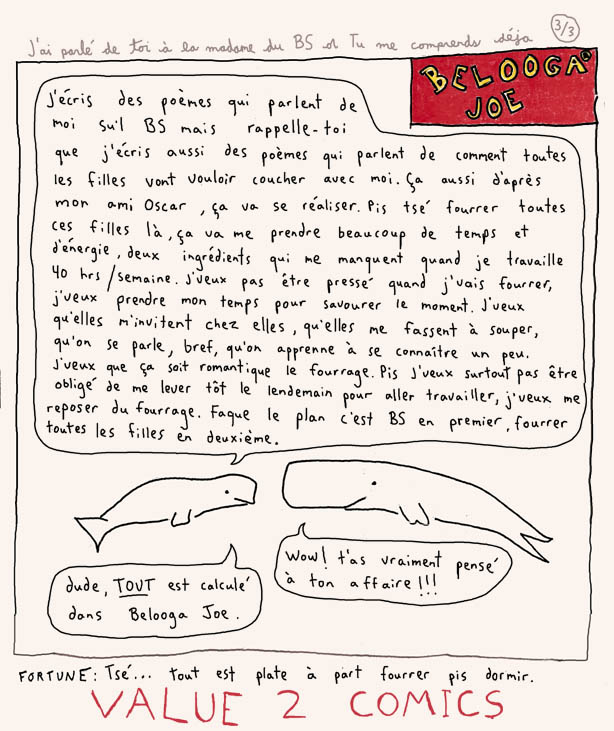 J'ai parlé de toi à la madame du BS et Tu me comprends déjà
3/3
BELOOGA
JOE
J'écris des poèmes qui parlent de
moi su'l BS mais rappelle-toi
que j'écris aussi des poèmes qui parlent de comment toutes
les filles vont vouloir coucher avec moi. Ça aussi d'après
mon ami Oscar, ça va se réaliser. Pis tsé fourrer toutes
ces filles là, ça va me prendre beaucoup de temps et
d'énergie, deux ingrédients qui me manquent quand je travaille
40 hrs/semaine. J'veux pas être pressé quand j'vais fourrer,
j'veux prendre mon temps pour savourer le moment. J'veux
qu'elles m'invitent chez elles, qu'elles me fassent à souper,
qu'on se parle, bref, qu'on apprenne à se connaître un peu.
J'veux que ça soit romantique le fourrage. Pis j'veux surtout pas être
obligé de me lever tôt le lendemain pour aller travailler, j'veux me
reposer du fourrage. Faque le plan c'est BS en premier, fourrer
toutes les filles en deuxième.
Wow! t'as vraiment pensé
à ton affaire!!!
dude, TOUT est calculé
dans Belooga Joe.
FORTUNE: Tsé... tout est plate à part fourrer pis dormir.
VALUE 2 COMICS